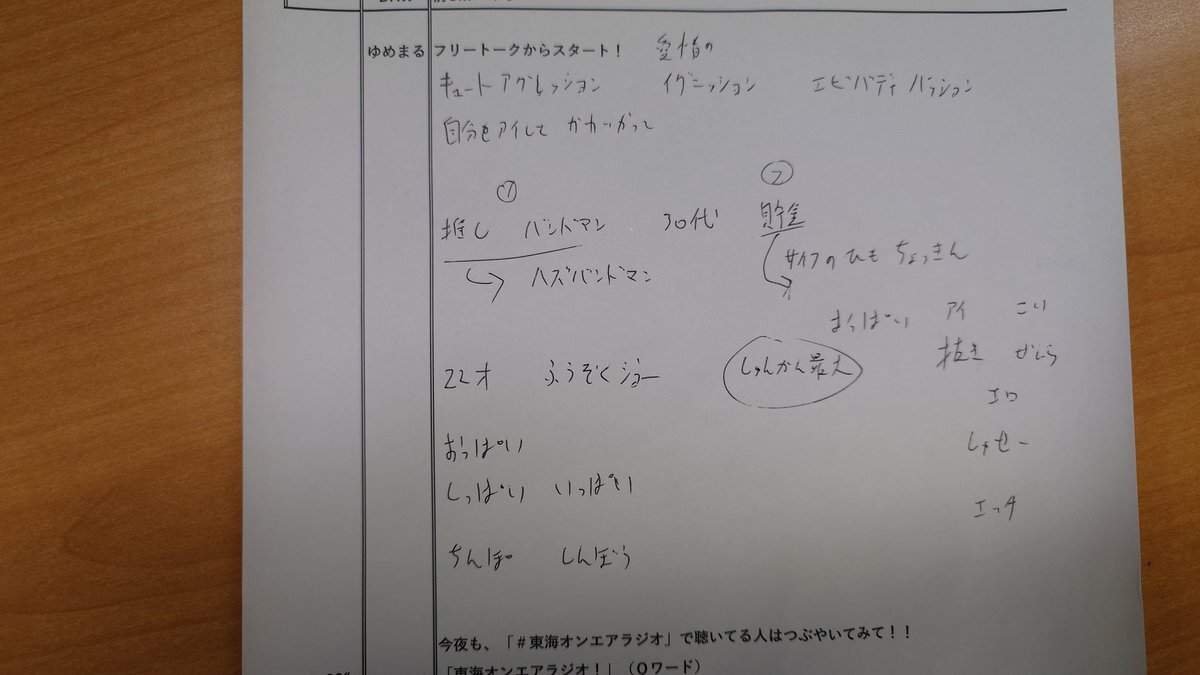 ゆめまる フリートークからスタート！ 愛情の
キュートアグレッション イグニッション エビバディ パッション
自分をアイして かわいがって
① ②
推し バンドマン 30代 貯金
ハズバンドマン サイフのひも ちょっきん
おっぱい アイ こい
抜き がら
22才 ふうぞくジョー しゅんかん最大
エロ
おっぱい しゃせー
しっぱい いっぱい
エッチ
ちんぽ しんぼう
今夜も、「＃東海オンエアラジオ」で聴いてる人はつぶやいてみて！！
「東海オンエアラジオ！」（Qワード）